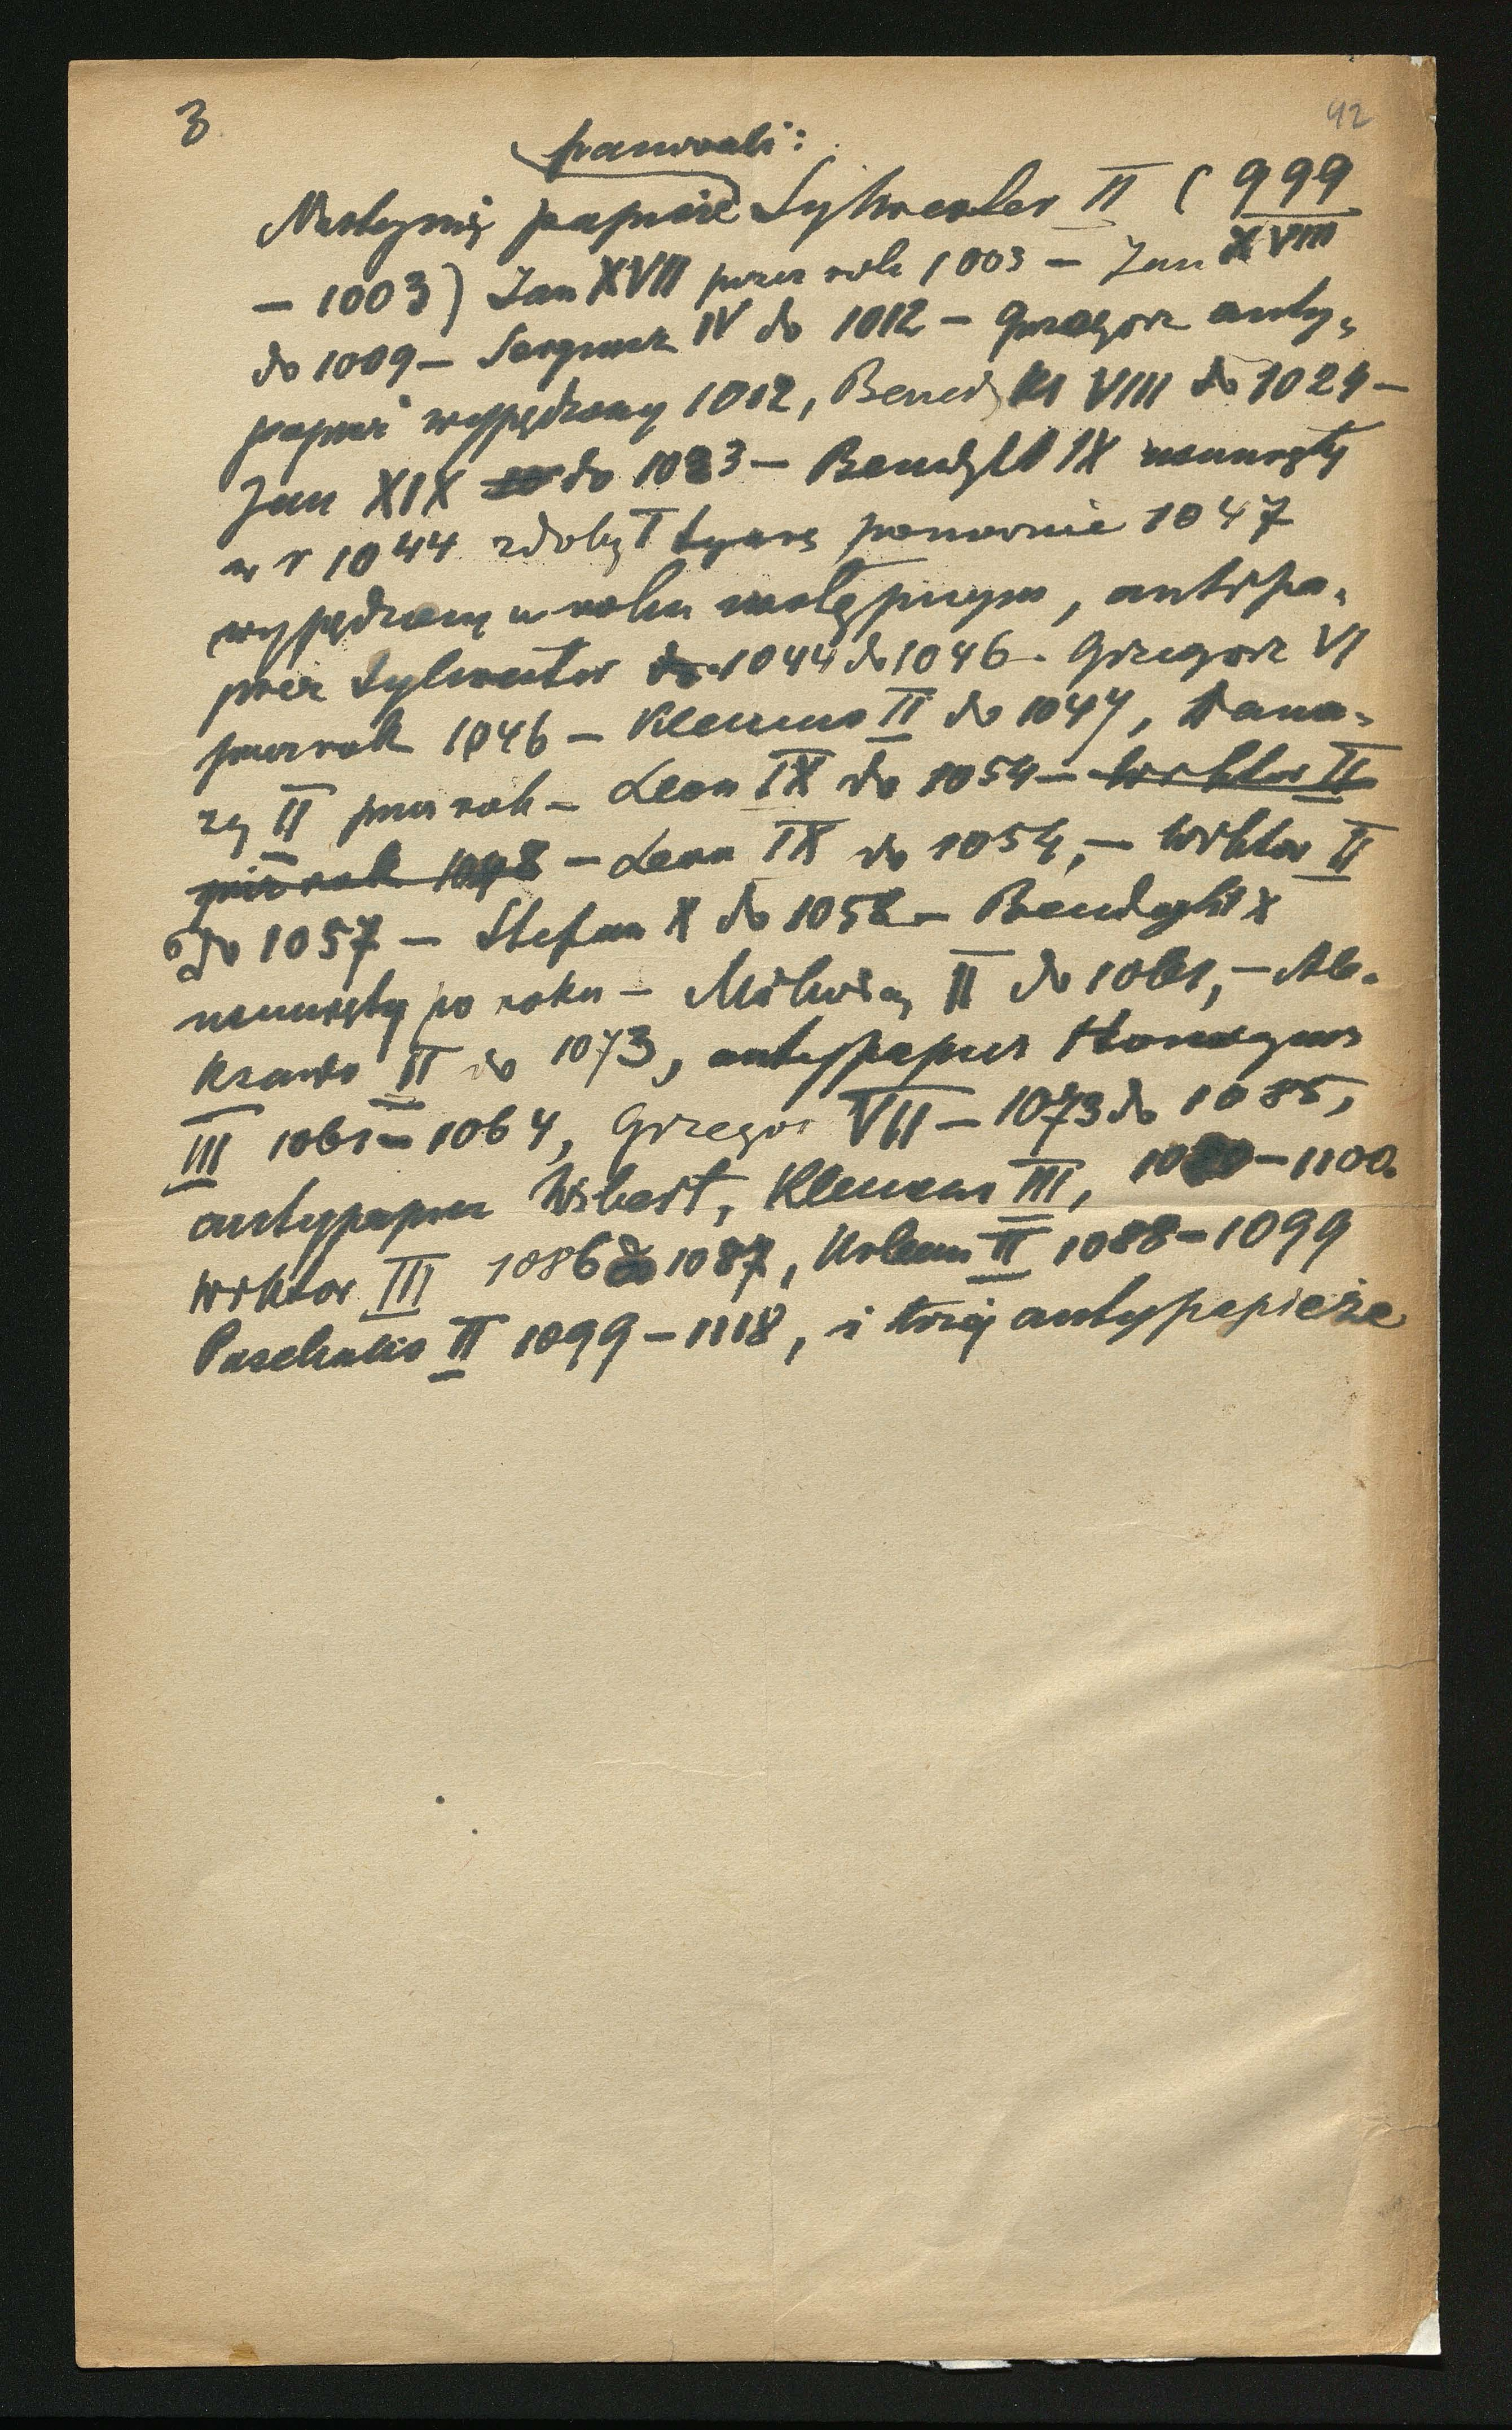 3
42
panowali:
Następnię papieże Sylwester II (999
– 1003) Jan XVII przez rok 1003 – Jan XVIII
do 1009 – Sergiusz IV do 1012 – Grzegorz anty-
papież wypędzony 1012, Benedykt VIII do 1024 –
Jan XIX do 1033 – Benedykt IX usunięty
w r 1044 zdobył tyarę ponownie 1047
wypędzony w roku następnym, antipa-
pież Sylwester 1044 do 1046 – Grzegorz VI
przez rok 1046 – Klemens II do 1047, Dama-
zy II przez rok – Leon IX do 1054 – Wiktor II
przez rok 1048 – Leon IX do 1054, – Wiktor II
do 1057 – Stefan X do 1058 – Benedykt X
usunięty po roku – Mikołaj II do 1061, – Ale-
ksander II do 1073, antypapież Honoryusz
III 1061 – 1064, Grzegorz VII – 1073 do 1085,
antypapież Wibert, Klemens III, 1080 – 1100
Wiktor III 1086 do 1087, Urban II 1088 – 1099
Paschalis II 1099 – 1118, i trzej antypapieże